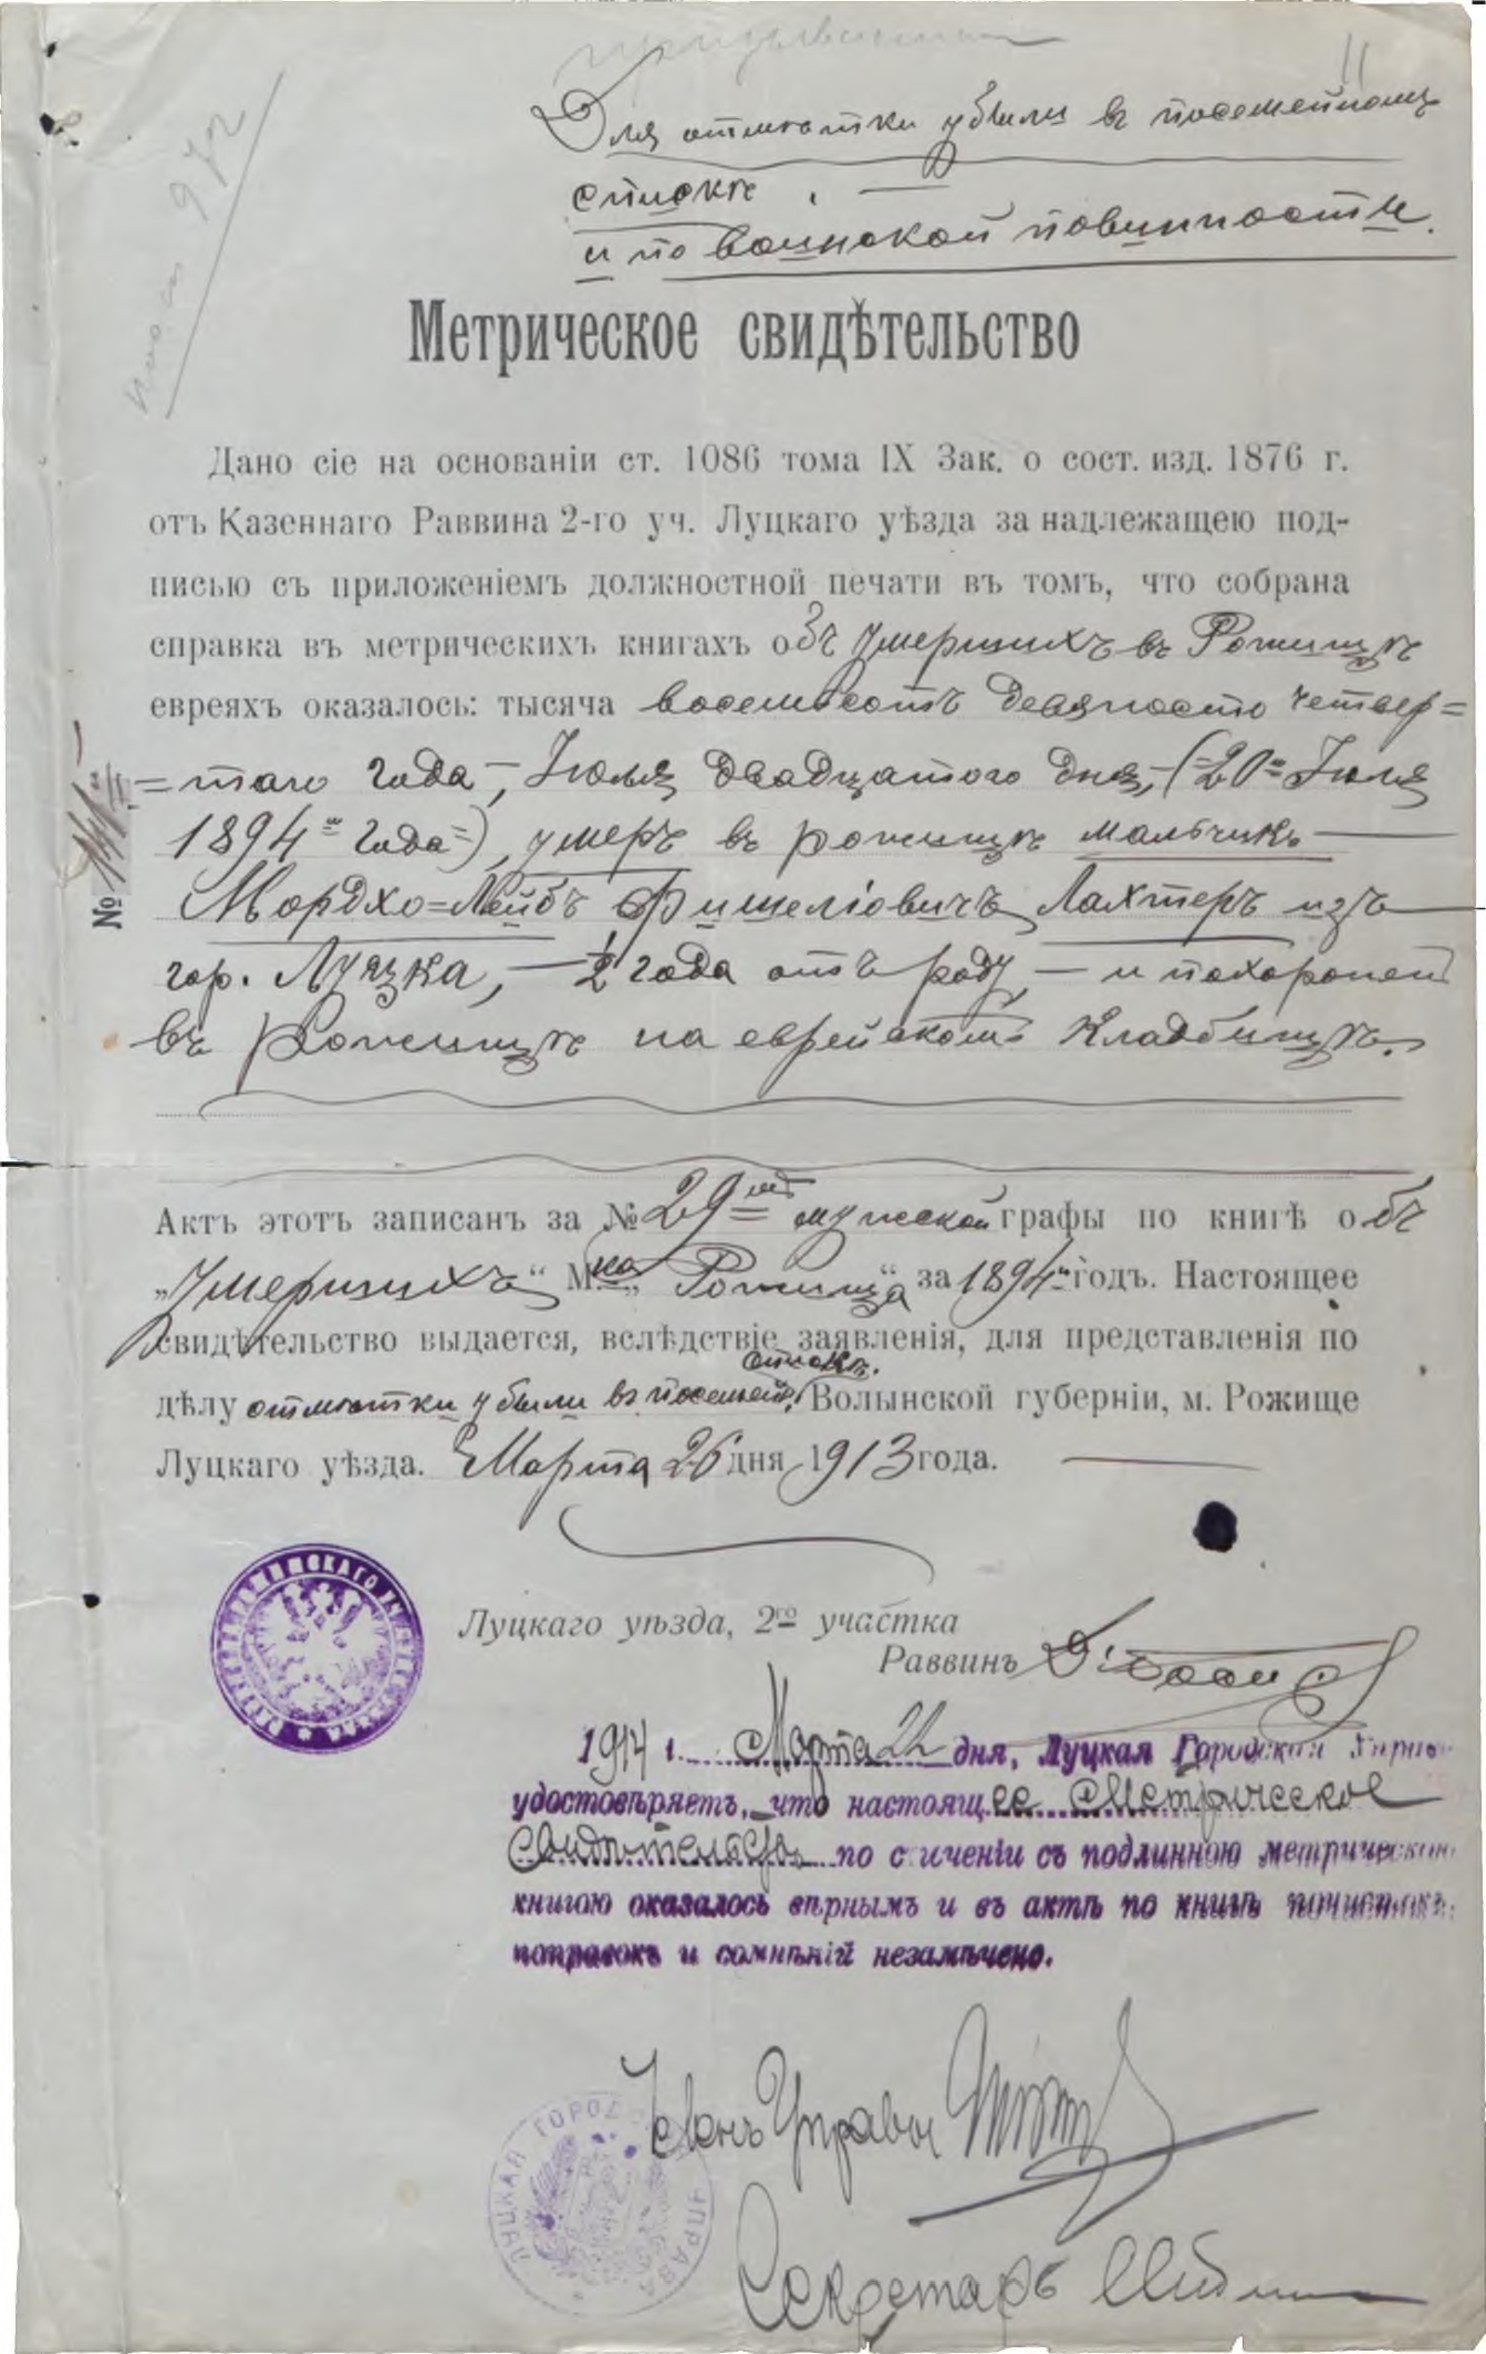 11
Для отмѣтки убыли въ посемейномъ
спискѣ
и по воинской повинности.
Метрическое свидѣтельство
Дано сіе на основаніи ст. 1086 тома IX Зак. о сост. изд. 1876 г.
отъ Казеннаго Раввина 2-го уч. Луцкаго уѣзда за надлежащею под-
писью съ приложеніемъ должностной печати въ томъ, что собрана
справка въ метрическихъ книгахъ объ умершихъ въ Рожищѣ
евреяхъ оказалось: тысяча восемьсотъ девяносто четвер=
=таго года, Іюля двадцатого дня, (20 Іюля
1894 года), умеръ въ Рожищѣ мальчикъ
№
Мордхо=Лейбъ Фишеліовичъ Лахтеръ изъ
гор. Луцка, — 1/2 года отъ роду, — и похороненъ
въ Рожищѣ на еврейскомъ кладбищѣ.
Актъ этотъ записанъ за № 29 мужской графы по книгѣ объ
„Умершихъ“ М-ка „Рожища“ за 1894 годъ. Настоящее
свидѣтельство выдается, вслѣдствіе заявленія, для представленія по
дѣлу отмѣтки убыли въ посемейн. спискѣ. Волынской губерніи, м. Рожище
Луцкаго уѣзда. Марта 26 дня 1913 года.
Луцкаго уѣзда, 2го участка
Раввинъ
1914 г. Марта 22 дня, Луцкая Городская Управа
удостовѣряетъ, что настоящее Метрическое
свидѣтельство по сличеніи съ подлинною метрическою
книгою оказалось вѣрнымъ и въ актѣ по книгѣ почистокъ,
поправокъ и сомнѣній незамѣчено.
Членъ Управы
ЛУЦКАЯ ГОРОДСКАЯ УПРАВА
Секретарь